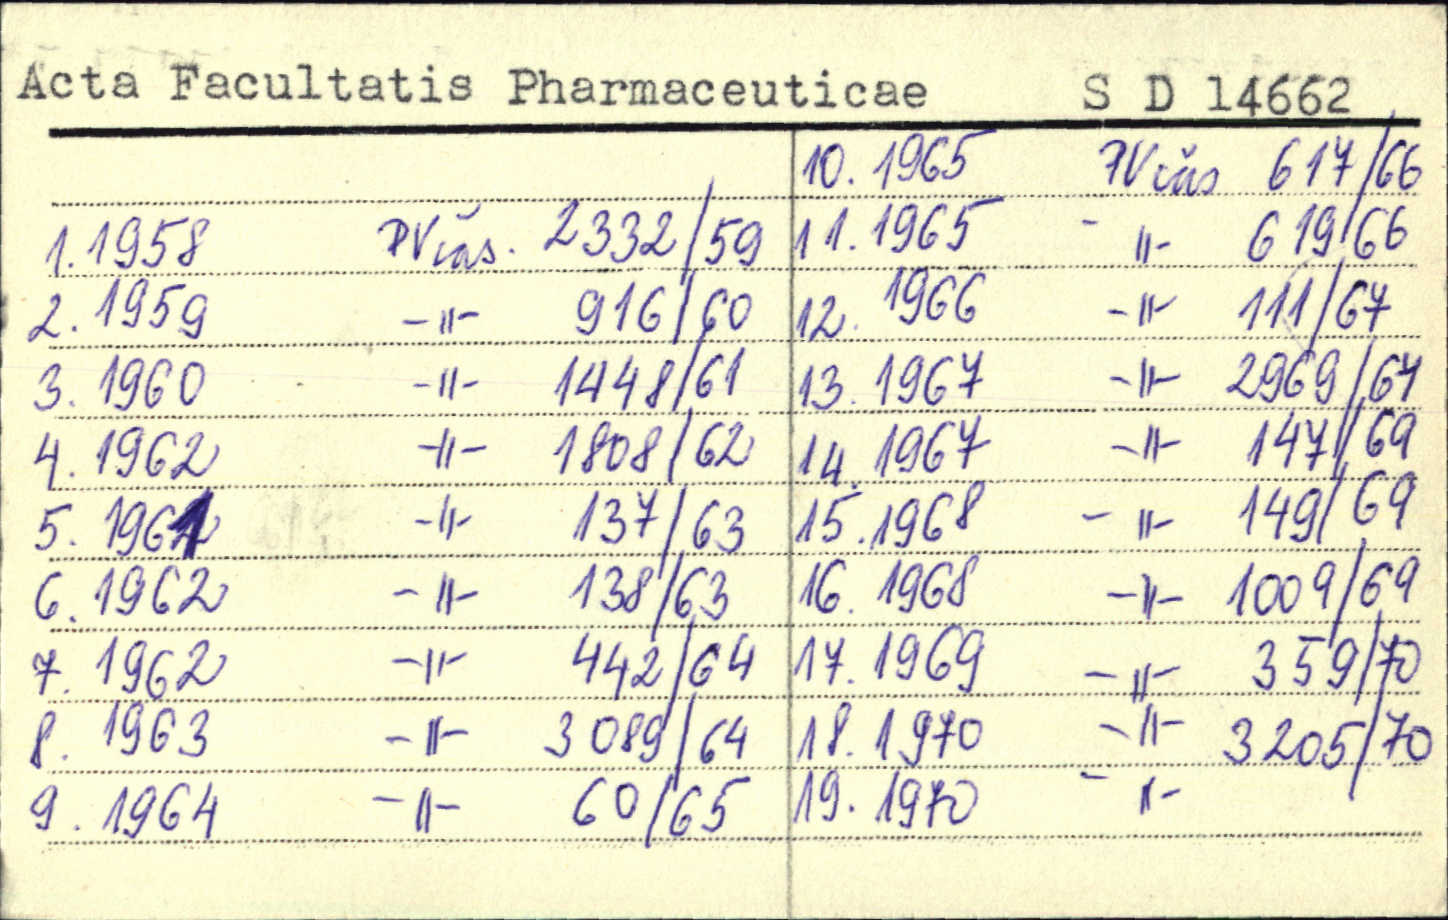 Acta Facultatis Pharmaceuticae S D 14662
1. 1958 PVčás. 2332/59
2. 1959 -"- 916/60
3. 1960 -"- 1448/61
4. 1962 -"- 1808/62
5. 1961 -"- 137/63
6. 1962 -"- 138/63
7. 1962 -"- 442/64
8. 1963 -"- 3089/64
9. 1964 -"- 60/65
10. 1965 PVčás 617/66
11. 1965 -"- 619/66
12. 1966 -"- 111/67
13. 1967 -"- 2969/67
14. 1967 -"- 147/69
15. 1968 -"- 149/69
16. 1968 -"- 1009/69
17. 1969 -"- 359/70
18. 1970 -"- 3205/70
19. 1970 -"-